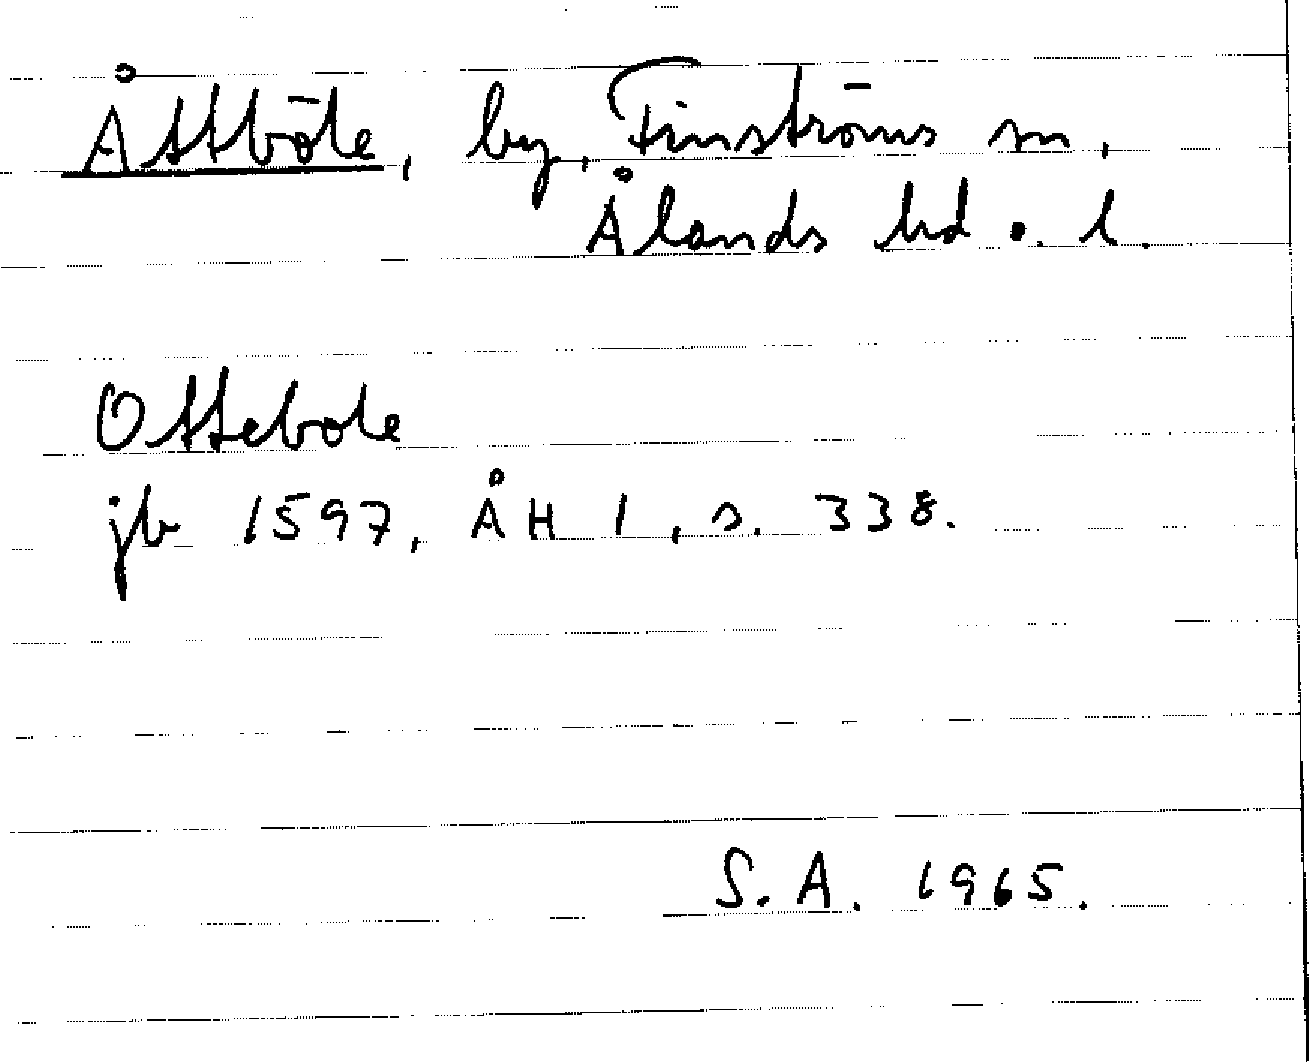 Åttböle, by, Finströms sn,
Ålands hd o. l.
Ottebole
jb 1597, ÅH 1, s. 338.
S. A. 1965.